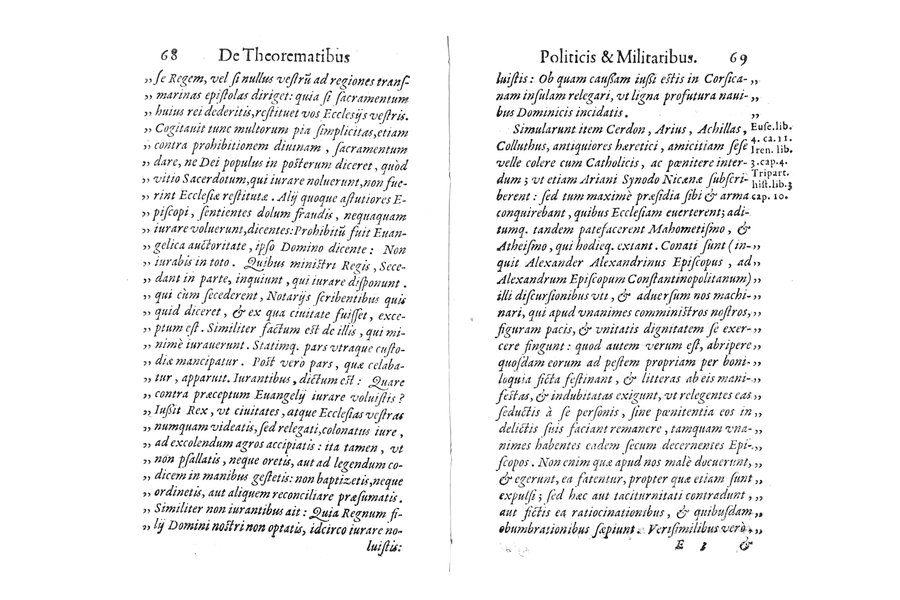 68 De Theorematibus
„ se Regem, vel si nullus vestrũ ad regiones trans-
„ marinas epistolas diriget: quia si sacramentum
„ huius rei dederitis, restituet vos Ecclesijs vestris.
„ Cogitauit tunc multorum pia simplicitas, etiam
„ contra prohibitionem diuinam, sacramentum
„ dare, ne Dei populus in posterum diceret, quòd
„ vitio Sacerdotum, qui iurare noluerunt, non fue-
„ rint Ecclesiæ restitutæ. Alij quoque astutiores E-
„ piscopi, sentientes dolum fraudis, nequaquam
„ iurare voluerunt, dicentes: Prohibitũ fuit Euan-
„ gelica auctoritate, ipso Domino dicente: Non
„ iurabis in toto. Quibus ministri Regis, Sece-
„ dant in parte, inquiunt, qui iurare disponunt.
„ qui cùm secederent, Notarijs scribentibus quis
„ quid diceret, & ex qua ciuitate fuisset, exce-
„ ptum est. Similiter factum est de illis, qui mi-
„ nimè iurauerunt. Statimq. pars vtraque custo-
„ diæ mancipatur. Pòst verò pars, quæ celaba-
„ tur, apparut. Iurantibus, dictum est: Quare
„ contra præceptum Euangelij iurare voluistis?
„ Iussit Rex, vt ciuitates, atque Ecclesias vestras
„ numquam videatis, sed relegati, colonatus iure,
„ ad excolendum agros accipiatis: ita tamen, vt
„ non psallatis, neque oretis, aut ad legendum co-
„ dicem in manibus gestetis: non baptizetis, neque
„ ordinetis, aut aliquem reconciliare præsumatis.
„ Similiter non iurantibus ait: Quia Regnum fi-
„ lij Domini nostri non optatis, idcirco iurare no-
luistis:
Politicis & Militaribus. 69
luistis: Ob quam caußam iußi estis in Corsica- „
nam insulam relegari, vt ligna profutura naui- „
bus Dominicis incidatis. „
Simularunt item Cerdon, Arius, Achillas,
Colluthus, antiquiores hæretici, amicitiam sese
velle colere cum Catholicis, ac pœnitere inter-
dum; vt etiam Ariani Synodo Nicænæ subscri-
berent: sed tum maximè præsidia sibi & arma
conquirebant, quibus Ecclesiam euerterent; adi-
tumq. tandem patefacerent Mahometismo, &
Atheismo, qui hodieq. extant. Conati sunt (in- „
quit Alexander Alexandrinus Episcopus, ad „
Alexandrum Episcopum Constantinopolitanum) „
illi discursionibus vti, & aduersum nos machi- „
nari, qui apud vnanimes comministros nostros, „
figuram pacis, & vnitatis dignitatem se exer- „
cere fingunt: quod autem verum est, abripere „
quosdam eorum ad pestem propriam per boni- „
loquia ficta festinant, & litteras ab eis mani- „
festas, & indubitatas exigunt, vt relegentes eas „
seductis à se personis, sine pœnitentia eos in „
delictis suis faciant remanere, tamquam vna- „
nimes habentes eadem secum decernentes Epi- „
scopos. Non enim quæ apud nos malè docuerunt, „
& egerunt, ea fatentur, propter quæ etiam sunt „
expulsi; sed hæc aut taciturnitati contradunt, „
aut fictis ea ratiocinationibus, & quibusdam „
obumbrationibus sæpiunt. Verisimilibus verò „
E 3 &
Euse. lib.
4. ca. 11.
Iren. lib.
3. cap. 4.
Tripart.
hist. lib. 3
cap. 10.